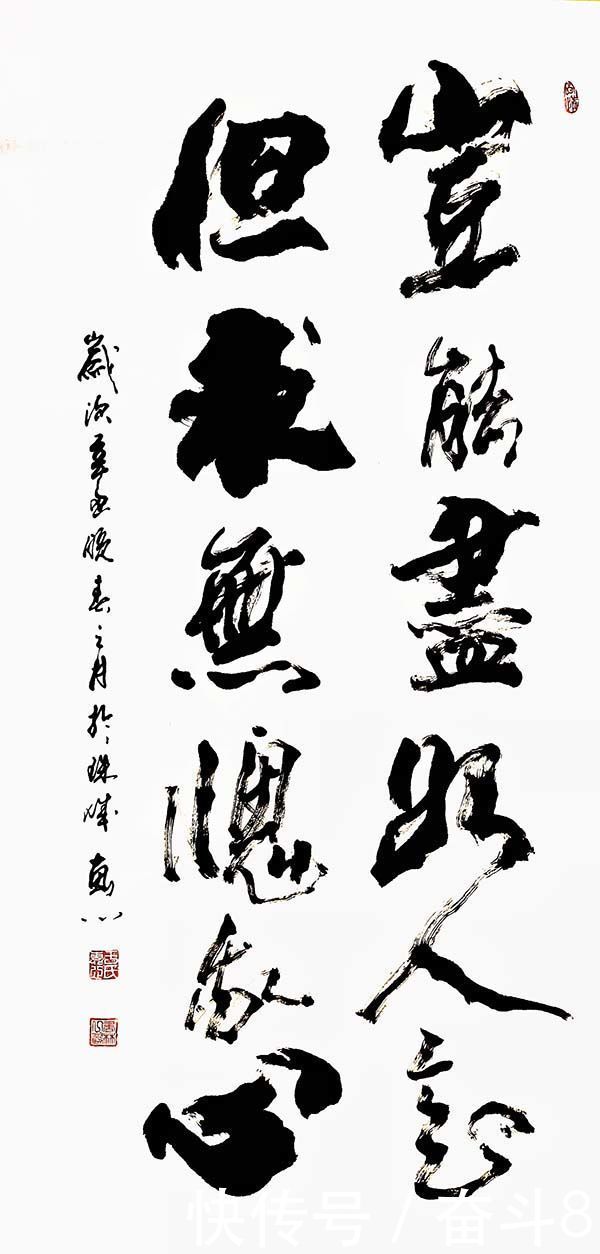 豈能盡如人意
但求無愧我心
歲次辛丑晚春之月於珠城
快传号 / 奋斗8